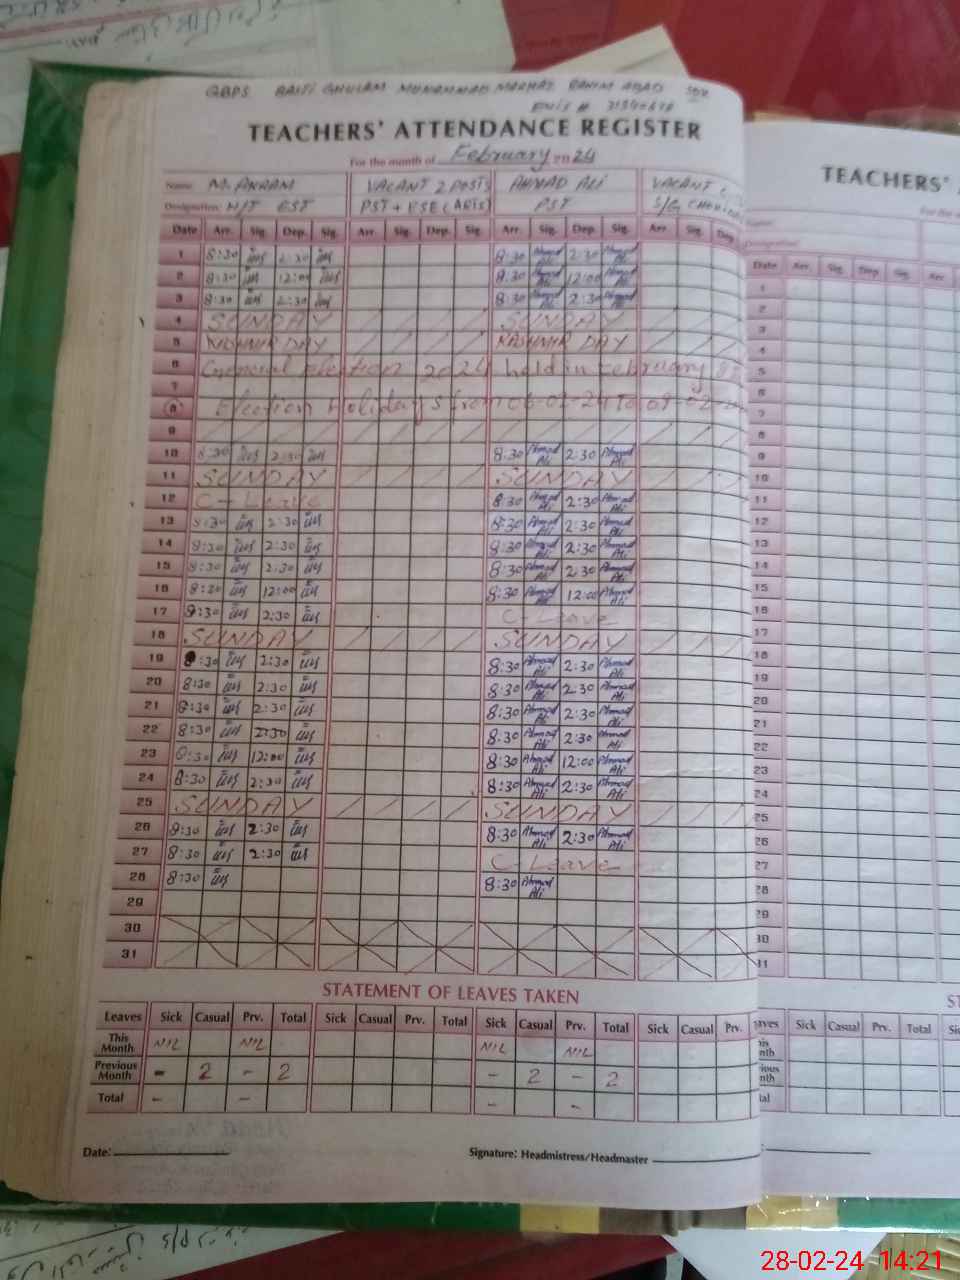 GBPS BASTI GHULAM MUHAMMAD
TEACHERS' ATTENDANCE REGISTER
For the month of February 2024
Name: M. AKRAM VACANT 2 POSTS AHMAD ALI VACANT
Designation: H/T EST PST + ESE (ARTS) PST
Date Arr. Sig. Dep. Sig. Arr. Sig. Dep. Sig. Arr. Sig. Dep. Sig. Arr. Sig. Dep.
1 8:30 2:30 8:30 Ahmad Ali 2:30 Ahmad Ali
2 8:30 12:00 8:30 Ahmad Ali 12:00 Ahmad Ali
3 8:30 2:30 8:30 Ahmad Ali 2:30 Ahmad Ali
4 SUNDAY SUNDAY
5 KASHMIR DAY KASHMIR DAY
6 General Election 2024 held in February
7
8 Election Holidays from 06-02-24 To 09-02-
9
10 8:30 2:30 8:30 Ahmad Ali 2:30 Ahmad Ali
11 SUNDAY SUNDAY
12 C-Leave 8:30 Ahmad Ali 2:30 Ahmad Ali
13 8:30 2:30 8:30 Ahmad Ali 2:30 Ahmad Ali
14 8:30 2:30 8:30 Ahmad Ali 2:30 Ahmad Ali
15 8:30 2:30 8:30 Ahmad Ali 2:30 Ahmad Ali
16 8:30 12:00 8:30 Ahmad Ali 12:00 Ahmad Ali
17 8:30 2:30 C-Leave
18 SUNDAY SUNDAY
19 8:30 2:30 8:30 Ahmad Ali 2:30 Ahmad Ali
20 8:30 2:30 8:30 Ahmad Ali 2:30 Ahmad Ali
21 8:30 2:30 8:30 Ahmad Ali 2:30 Ahmad Ali
22 8:30 2:30 8:30 Ahmad Ali 2:30 Ahmad Ali
23 8:30 12:00 8:30 Ahmad Ali 12:00 Ahmad Ali
24 8:30 2:30 8:30 Ahmad Ali 2:30 Ahmad Ali
25 SUNDAY SUNDAY
26 8:30 2:30 8:30 Ahmad Ali 2:30 Ahmad Ali
27 8:30 2:30 C-Leave
28 8:30 8:30 Ahmad Ali
29
30
31
STATEMENT OF LEAVES TAKEN
Leaves Sick Casual Prv. Total Sick Casual Prv. Total Sick Casual Prv. Total Sick Casual Prv.
This Month NIL NIL NIL NIL
Previous Month - 2 - 2 - 2 - 2
Total - - - -
Date: Signature: Headmistress/Headmaster
TEACHERS'
Date Arr. Sig. Dep. Sig. Arr
1
2
3
4
5
6
7
8
9
10
11
12
13
14
15
16
17
18
19
20
21
22
23
24
25
26
27
28
29
30
31
Sick Casual Prv. Total
28-02-24 14:21